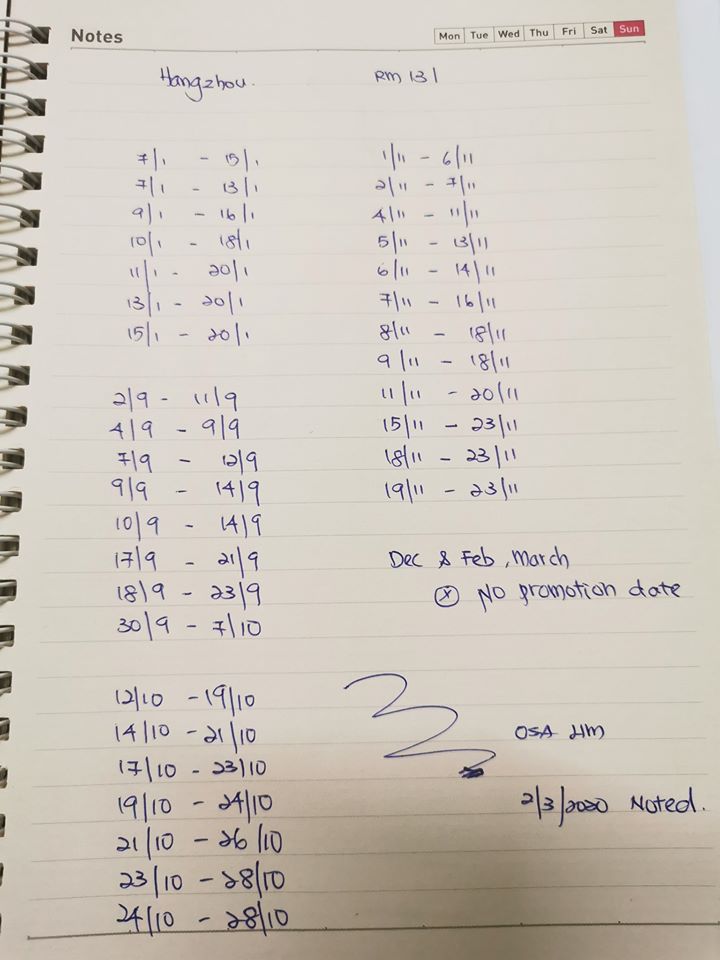 Notes
Mon Tue Wed Thu Fri Sat Sun
Hangzhou.
RM 131
7/1 - 15/1
7/1 - 13/1
9/1 - 16/1
10/1 - 18/1
11/1 - 20/1
13/1 - 20/1
15/1 - 20/1
2/9 - 11/9
4/9 - 9/9
7/9 - 12/9
9/9 - 14/9
10/9 - 14/9
17/9 - 21/9
18/9 - 23/9
30/9 - 7/10
12/10 - 19/10
14/10 - 21/10
17/10 - 23/10
19/10 - 24/10
21/10 - 26/10
23/10 - 28/10
24/10 - 28/10
1/11 - 6/11
2/11 - 7/11
4/11 - 11/11
5/11 - 13/11
6/11 - 14/11
7/11 - 16/11
8/11 - 18/11
9/11 - 18/11
11/11 - 20/11
15/11 - 23/11
18/11 - 23/11
19/11 - 23/11
Dec & Feb, March
ⓧ No promotion date
OSA
2/3/2020 Noted.